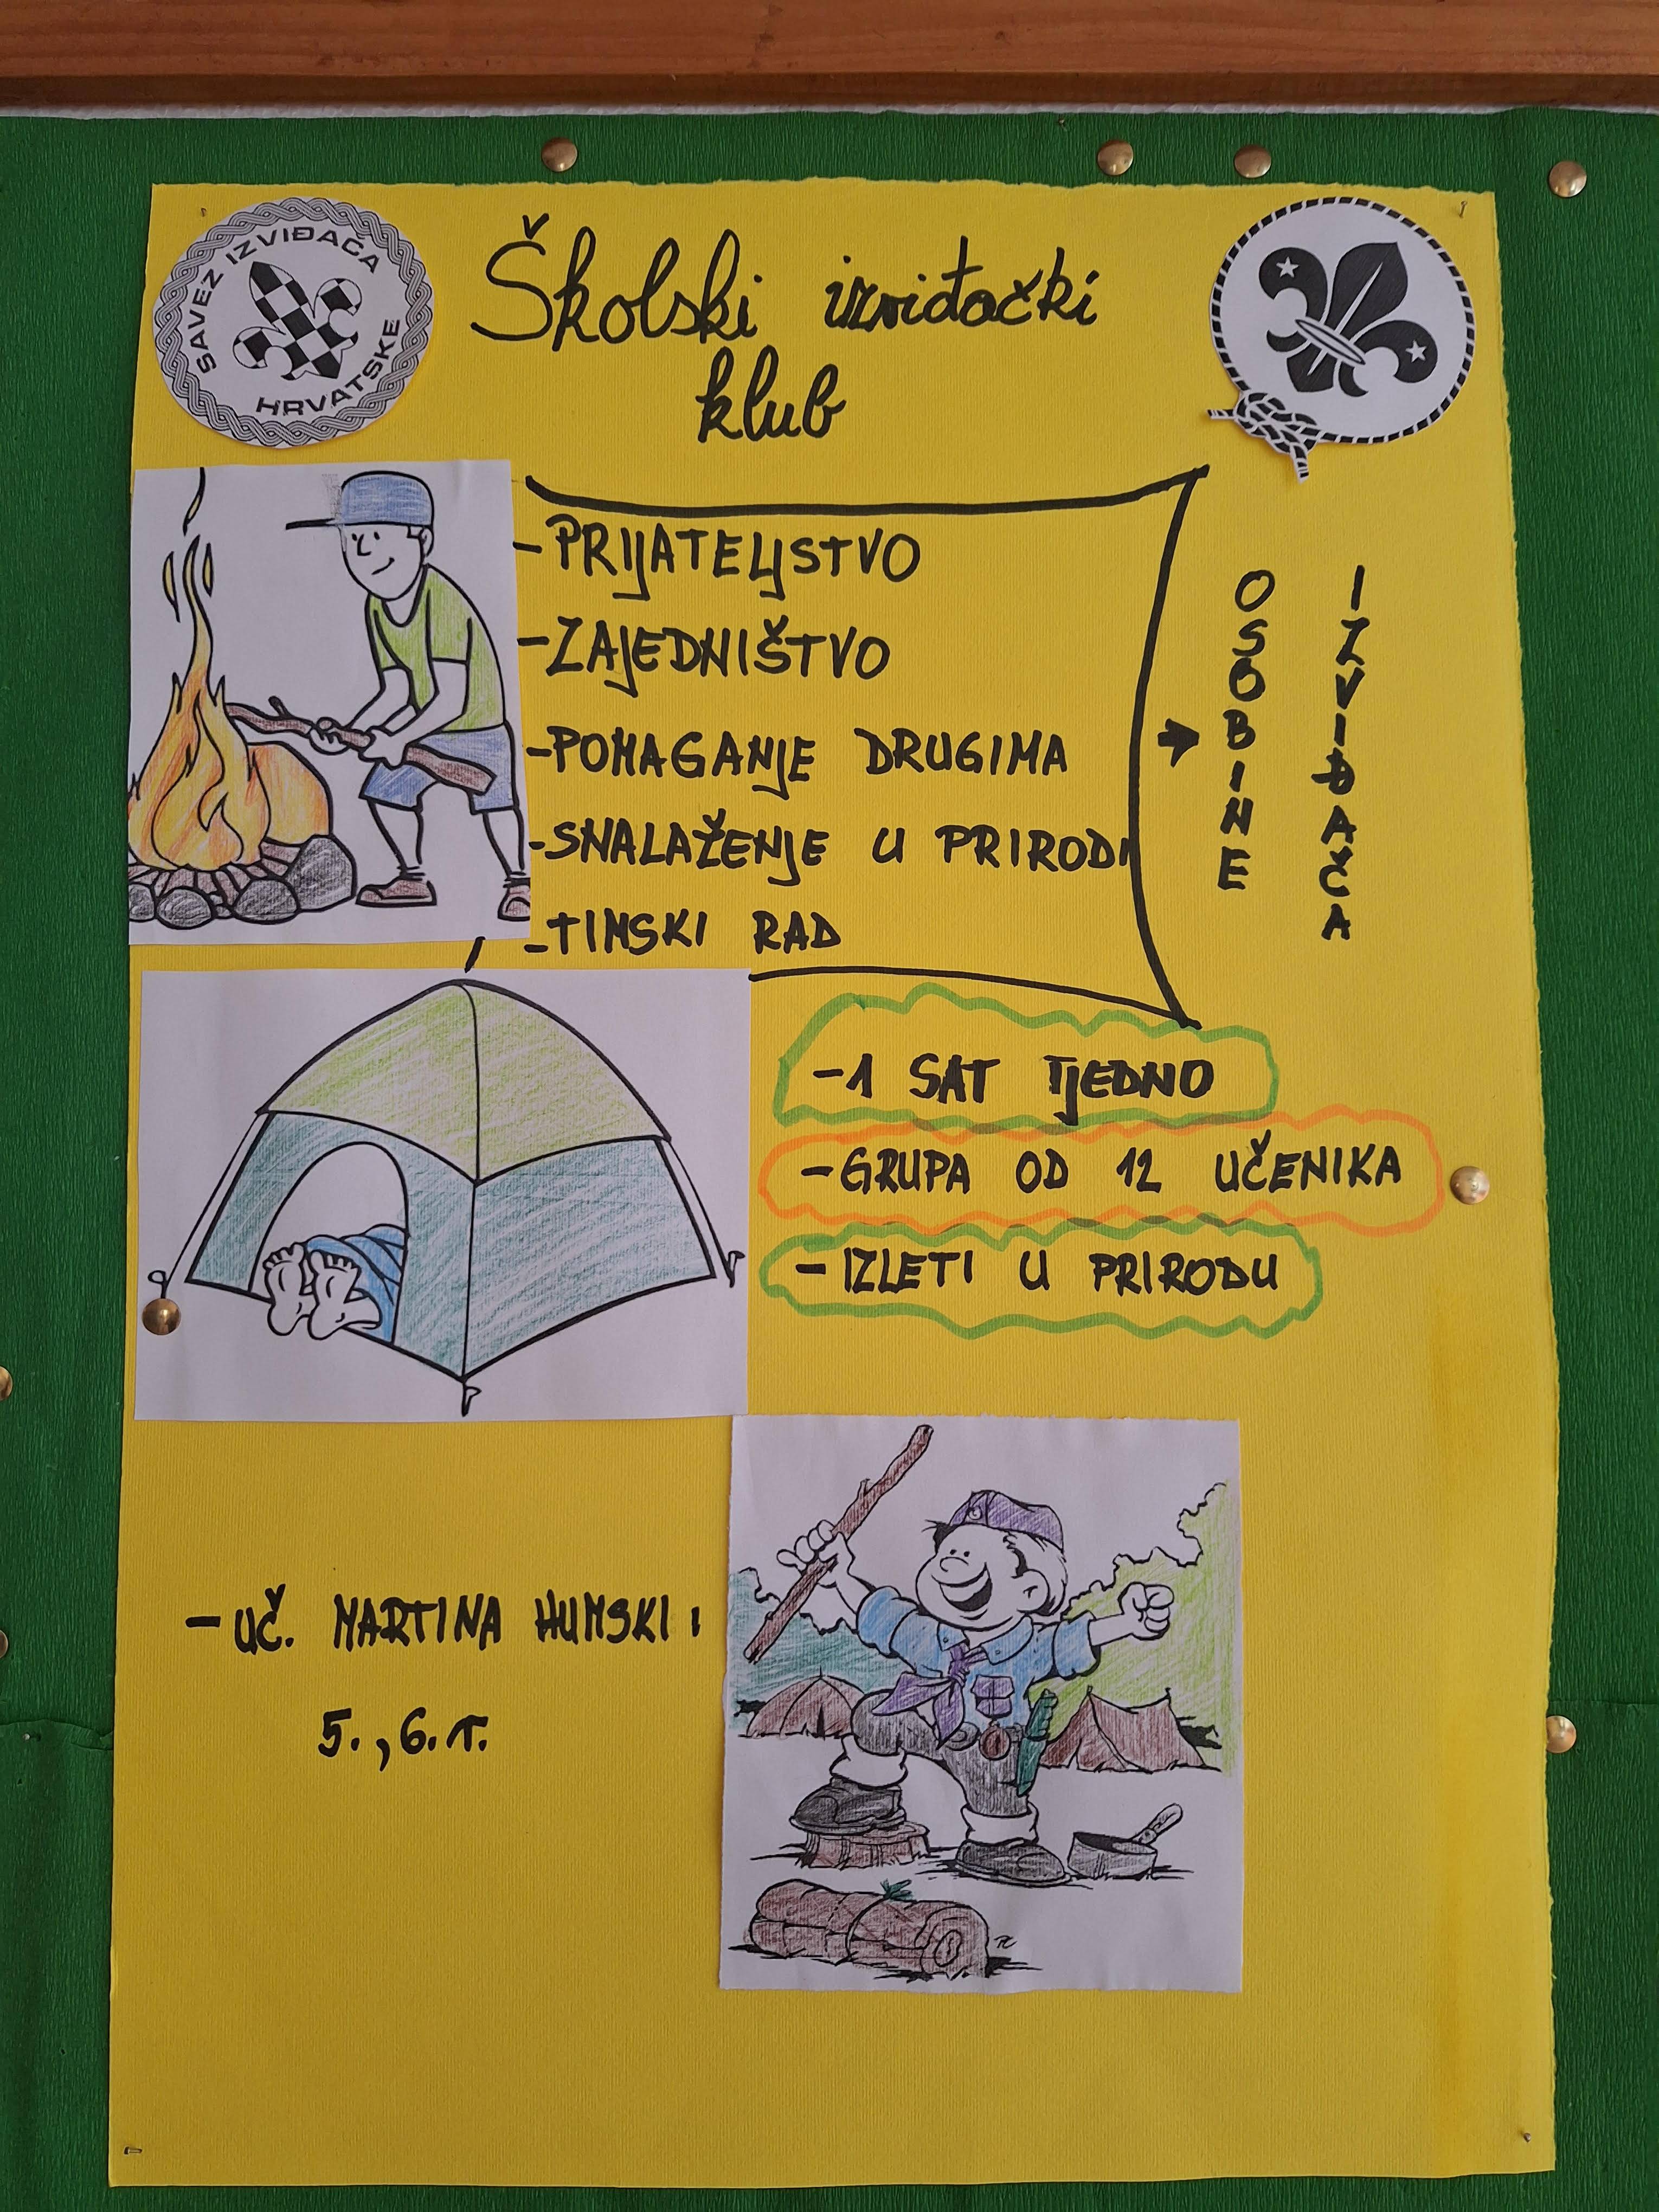 SAVEZ IZVIĐAČA
HRVATSKE
Školski izviđački
klub
-PRIJATELJSTVO
-ZAJEDNIŠTVO
-POMAGANJE DRUGIMA
-SNALAŽENJE U PRIRODI
-TIMSKI RAD
OSOBINE
IZVIĐAČA
-1 SAT TJEDNO
-GRUPA OD 12 UČENIKA
-IZLETI U PRIRODU
-UČ. MARTINA HUMSKI :
5.,6.r.